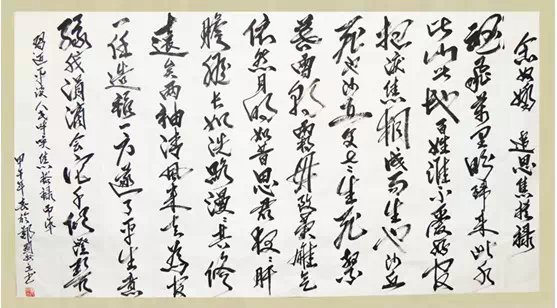 念奴娇 追思焦裕禄
魂飞万里盼归来此水
此山此地百姓谁不爱好官
把泪焦桐成雨生也沙丘
死也沙丘父老生死系
暮雪朝霜毋改英雄意气
依然月明如昔思君夜夜肝
胆长如洗路漫漫其修
远矣两袖清风来去为官
一任造福一方遂了平生意
绿我涓滴会它千顷澄碧
习近平读人民呼唤焦裕禄而作
甲午年春於郑州